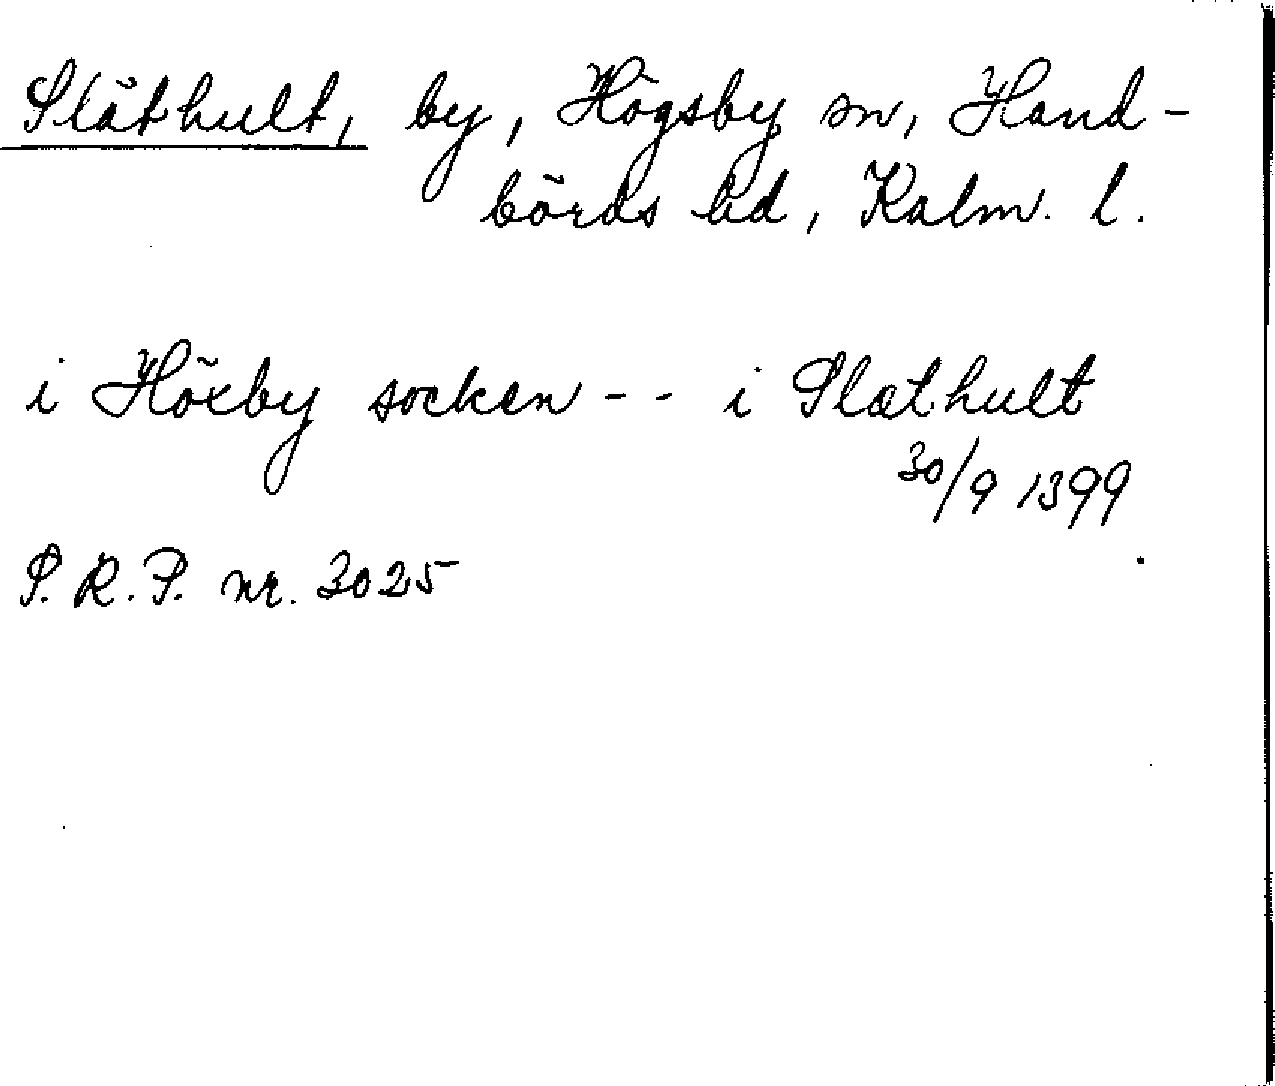 Släthult, by, Högsby sn, Hand-
börds hd, Kalm. l.
i Höxby socken - - i Slæthult
30/9 1399
S.R.P. nr. 3025